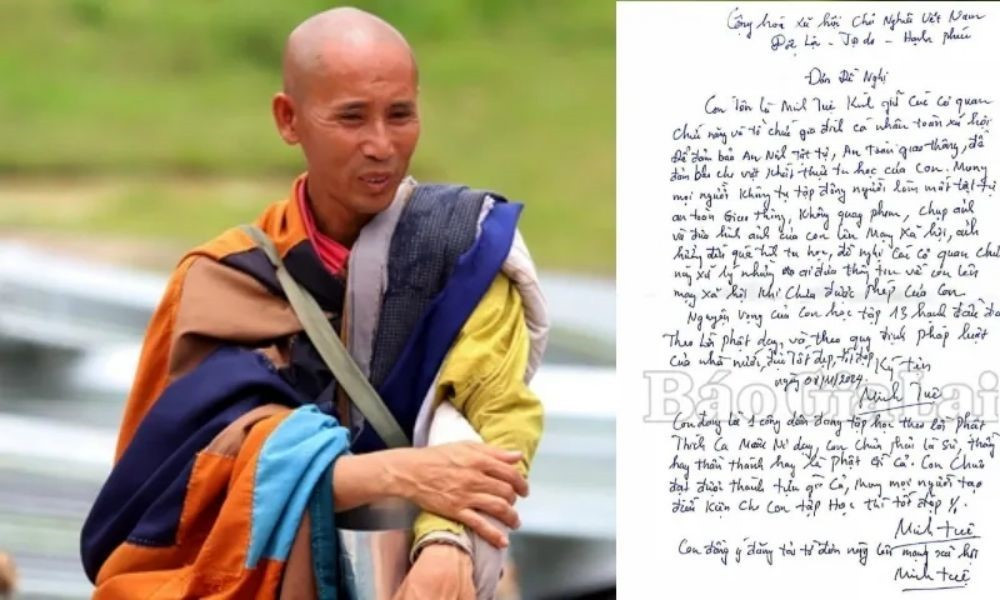 Cộng hoà xã hội chủ Nghĩa Việt Nam
Độc lập - Tự do - Hạnh phúc
Đơn Đề Nghị
Con tên là Minh Tuệ Kính gửi các cơ quan
chức năng và tổ chức gia đình cá nhân toàn xã hội
Để đảm bảo An Ninh trật tự, An toàn giao thông, để
đảm bảo cho việc khất thực tu học của con. Mong
mọi người không tụ tập đông người làm mất trật tự
an toàn Giao thông, không quay phim, chụp ảnh
và đưa hình ảnh của con lên mạng xã hội, ảnh
hưởng đến quá trình tu học, đề nghị các cơ quan chức
năng xử lý những ai đưa thông tin về con lên
mạng xã hội khi chưa được phép của con
Nguyện vọng của con học tập 13 hạnh đầu đà
Theo lời phật dạy, và theo quy định pháp luật
của nhà nước, tốt đẹp Ký tên
Minh Tuệ
Báo Gia Lai
Con đang là 1 công dân đang tập học theo lời phật
Thích Ca Mâu Ni dạy con chưa phải là sư, thầy
hay thần thánh hay là phật gì cả. Con chưa
đạt được thành tựu gì cả, mong mọi người tạo
điều kiện cho con tập học thì tốt đẹp
Minh tuệ
Con đồng ý đăng tải tờ đơn này lên mạng xã hội
Minh tuệ